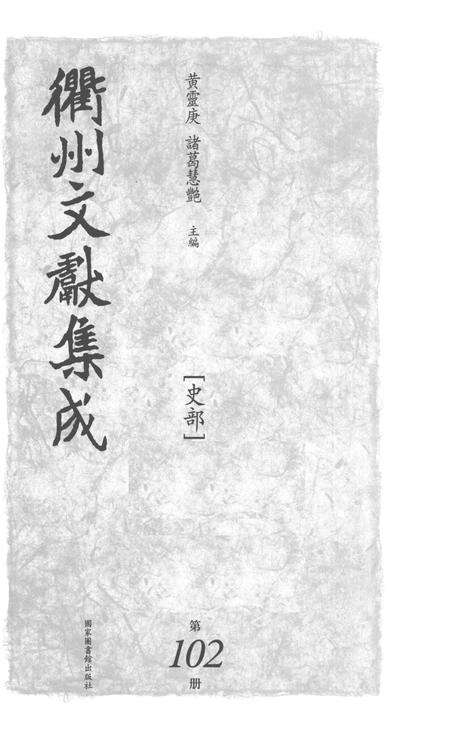 衢州文獻集成
黃靈庚 諸葛慧艷 主編
[史部]
第
102
册
國家圖書館出版社